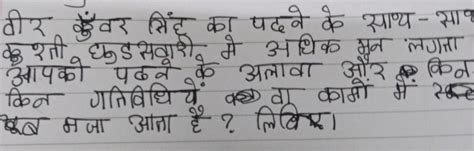 वीर कुँवर सिंह का पढने के साथ - साथ
कुश्ती घुडसवारी मे अधिक मन लगता
आपको पढने के अलावा और किन
किन गतिविधियें वा कामों में
खूब मजा आता है ? लिखिए।